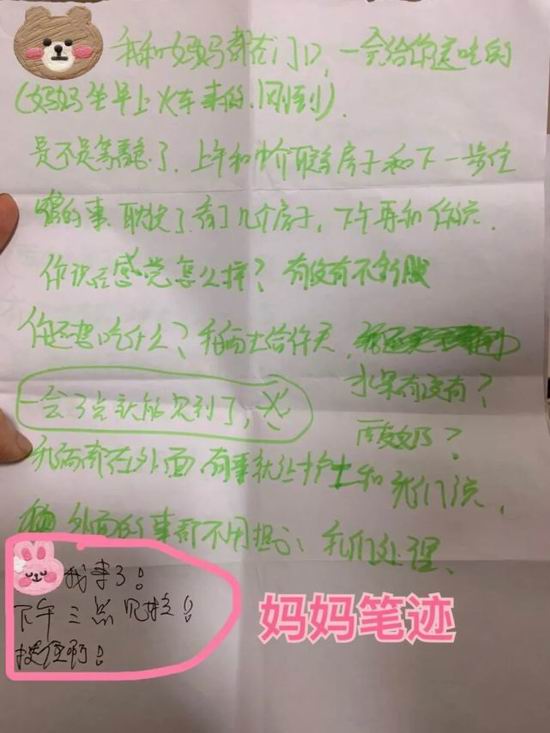 我和妈妈都在门口,一会给你送吃的
(妈妈坐早上火车来的,刚到).
是不是等着急了.上午和中介联系房子和下一步住
院的事.耽误了.看了几个房子,下午再和你说.
你现在感觉怎么样?有没有不舒服
你还想吃什么?和护士给你买.
水果有没有?
一会3点就能见到了,
西梅汁?
我俩都在外面,有事就让护士和我们说.
外面的事都不用担心,我们处理.
我来了!
下午三点见啦!
挺住啊!
妈妈笔迹